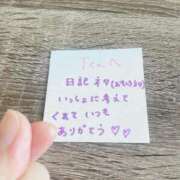 Tくんへ
日記ネタ(おもしろい)
いっしょに考えて
くれていつも
ありがとう♡♡